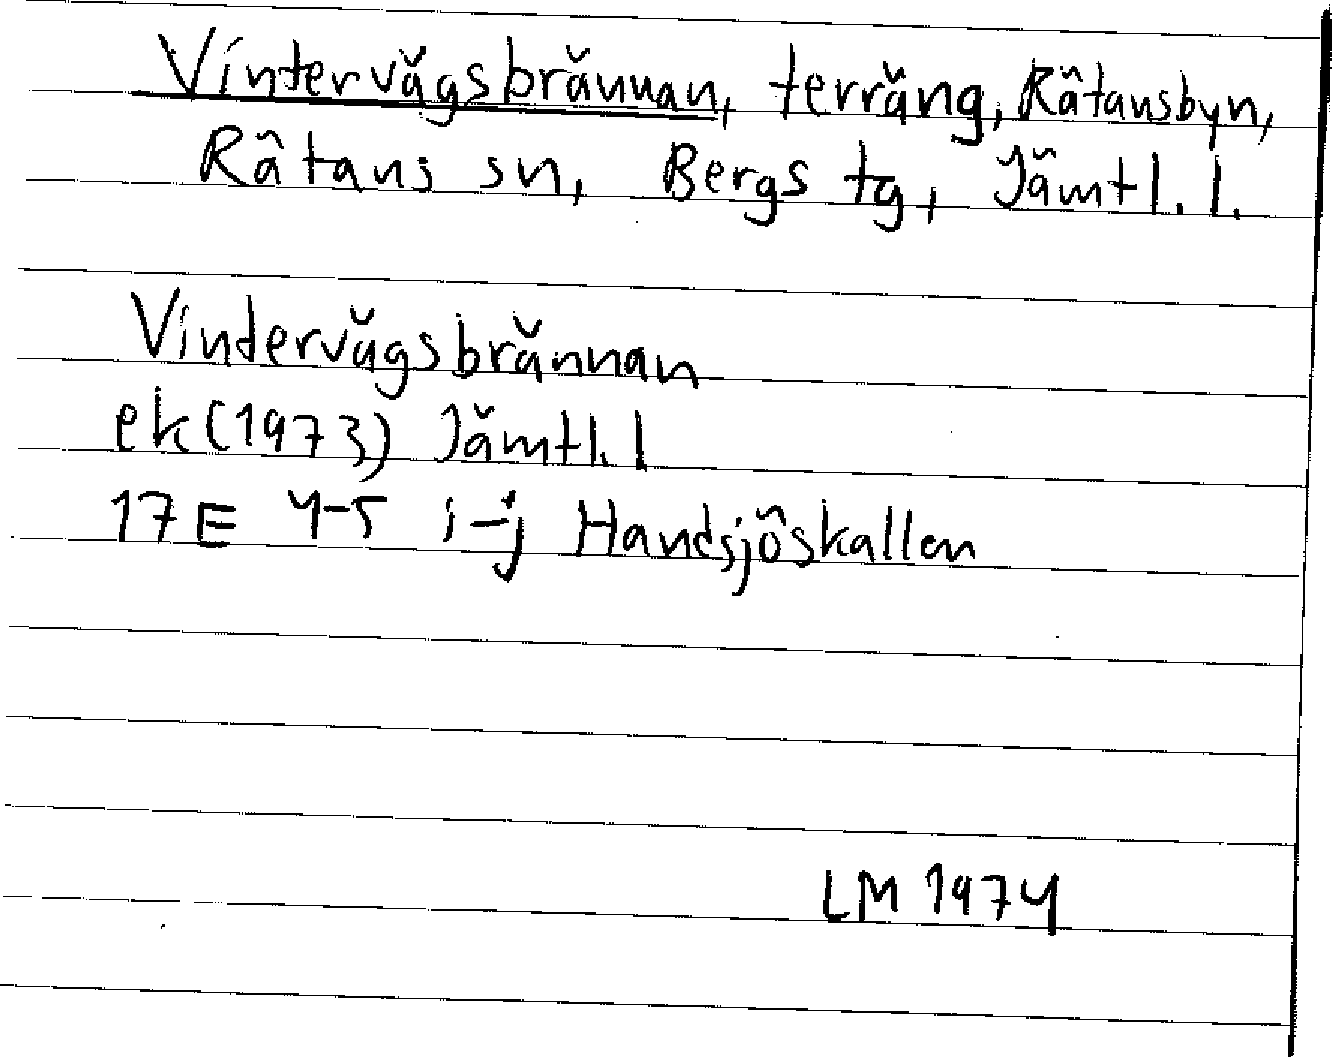 Vintervägsbrännan, terräng, Rätansbyn,
Rätans sn, Bergs tg, Jämtl. l.
Vindervägsbrännan
ek (1973) Jämtl. l
17E 4-5 i-j Handsjöskallen
LM 1974